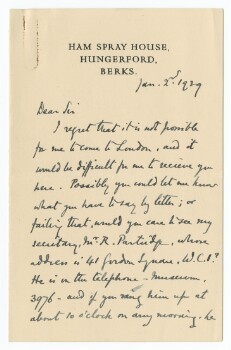 HAM SPRAY HOUSE,
HUNGERFORD,
BERKS.
Jan. 2nd 1929
Dear Sir
I regret that it is not possible
for me to come to London, and it
would be difficult for me to recieve you
here. Possibly you could let me know
what you have to say by letter; or
failing that, would you care to see my
secretary, Mr. R. Partridge, whose
address is 41 Gordon Square, W.C.1?
He is on the telephone - Museum
3976 - and if you rang him up at
about 10 o'clock on any morning, he